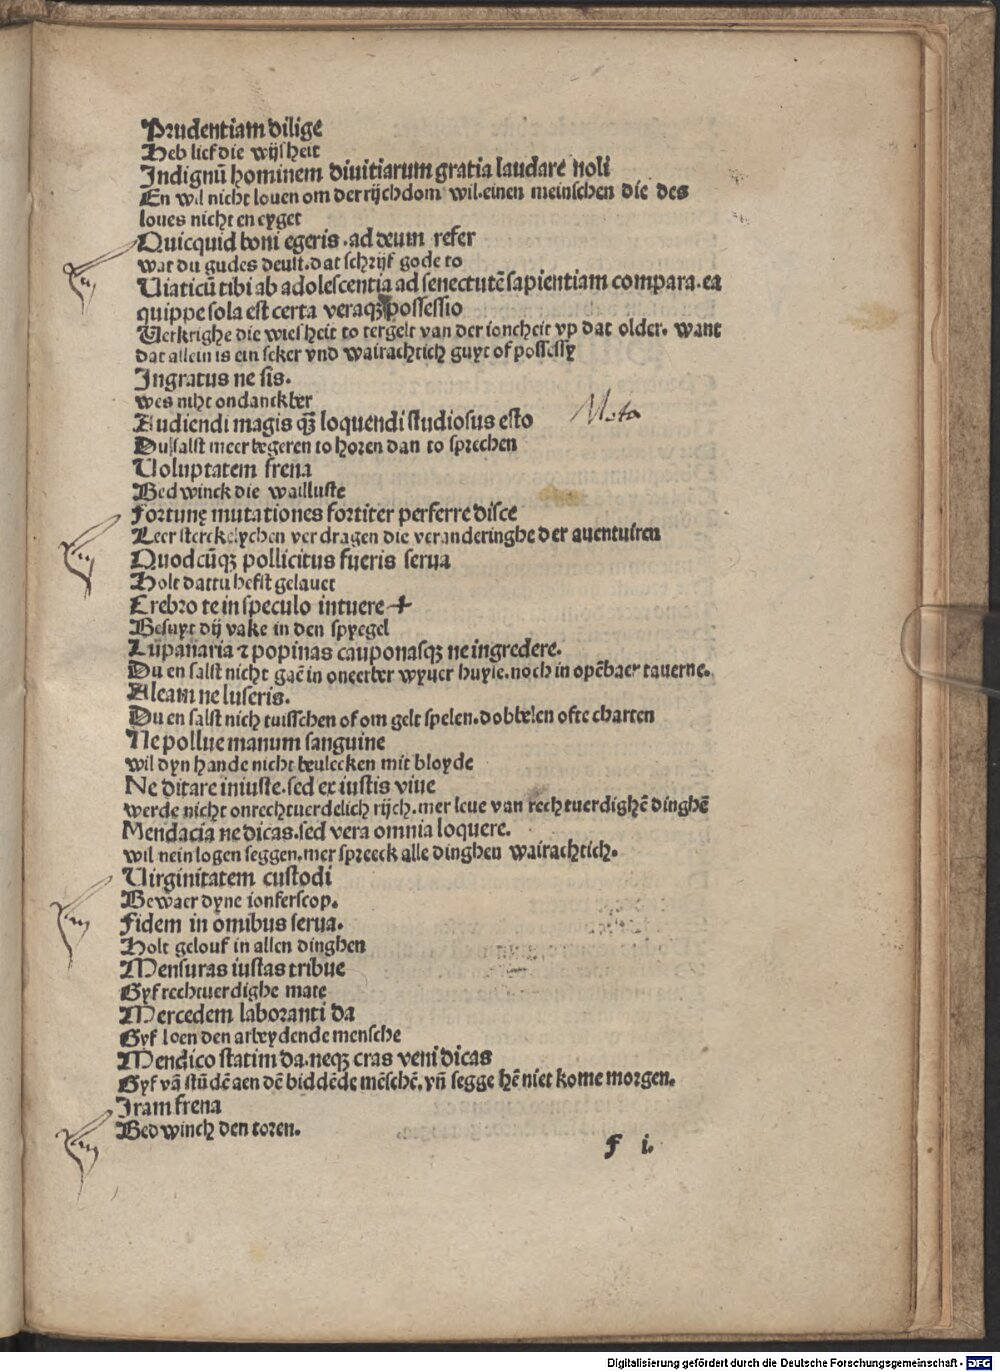 Prudentiam dilige
Heb lief die wijsheit
Indignū hominem diuitiarum gratia laudare noli
En wil nicht louen om der rijchdom wil.einen meinschen die des
loues nicht en eyget
Quicquid boni egeris .ad deum refer
wat du gudes deust.dat schrijf gode to
Uiaticū tibi ab adolescentia ad senectutē sapientiam compara.ea
quippe sola est certa veraqꝫ possessio
Uerkrighe die wiesheit to tergelt van der ioncheit vp dat older. want
dat allein is ein seker vnd wairachtich guyt of possessy
Ingratus ne sis.
wes niht ondanckber
Audiendi magis qꝫ̄ loquendi studiosus esto
Nota
Du salst meer begeren to horen dan to sprechen
Uoluptatem frena
Bedwinck die wailluste
Fortunę mutationes fortiter perferre disce
Leer sterckelychen verdragen die veranderinghe der auentuiren
Quodcūqꝫ pollicitus fueris serua
Holt dattu hefst gelauet
Crebro te in speculo intuere +
Besuyt dij vake in den spyegel
Lupanaria ⁊ popinas cauponasqꝫ ne ingredere.
Du en salst nicht gaē in oneerber wyuer huyse.noch in opēbaer tauerne.
Aleam ne luseris.
Du en salst nich tuisschen of om gelt spelen.dobbelen ofte charten
Ne pollue manum sanguine
wil dyn hande nicht beulecken mit bloyde
Ne ditare iniuste.sed ex iustis viue
werde nicht onrechtuerdelich rijch.mer leue van rechtuerdighē dinghē
Mendacia ne dicas.sed vera omnia loquere.
wil nein logen seggen.mer spreeck alle dinghen wairachtich.
Uirginitatem custodi
Bewaer dyne ionferscop.
Fidem in omibus serua.
Holt gelouf in allen dinghen
Mensuras iustas tribue
Gyf rechtuerdighe mate
Mercedem laboranti da
Gyf loen den arbeydende mensche
Mendico statim da.neqꝫ cras veni dicas
Gyf vā stūdē aen dē biddēde mēschē.vn̄ segge hē niet kome morgen.
Iram frena
Bedwinch den toren.
f i.
Digitalisierung gefördert durch die Deutsche Forschungsgemeinschaft - DFG